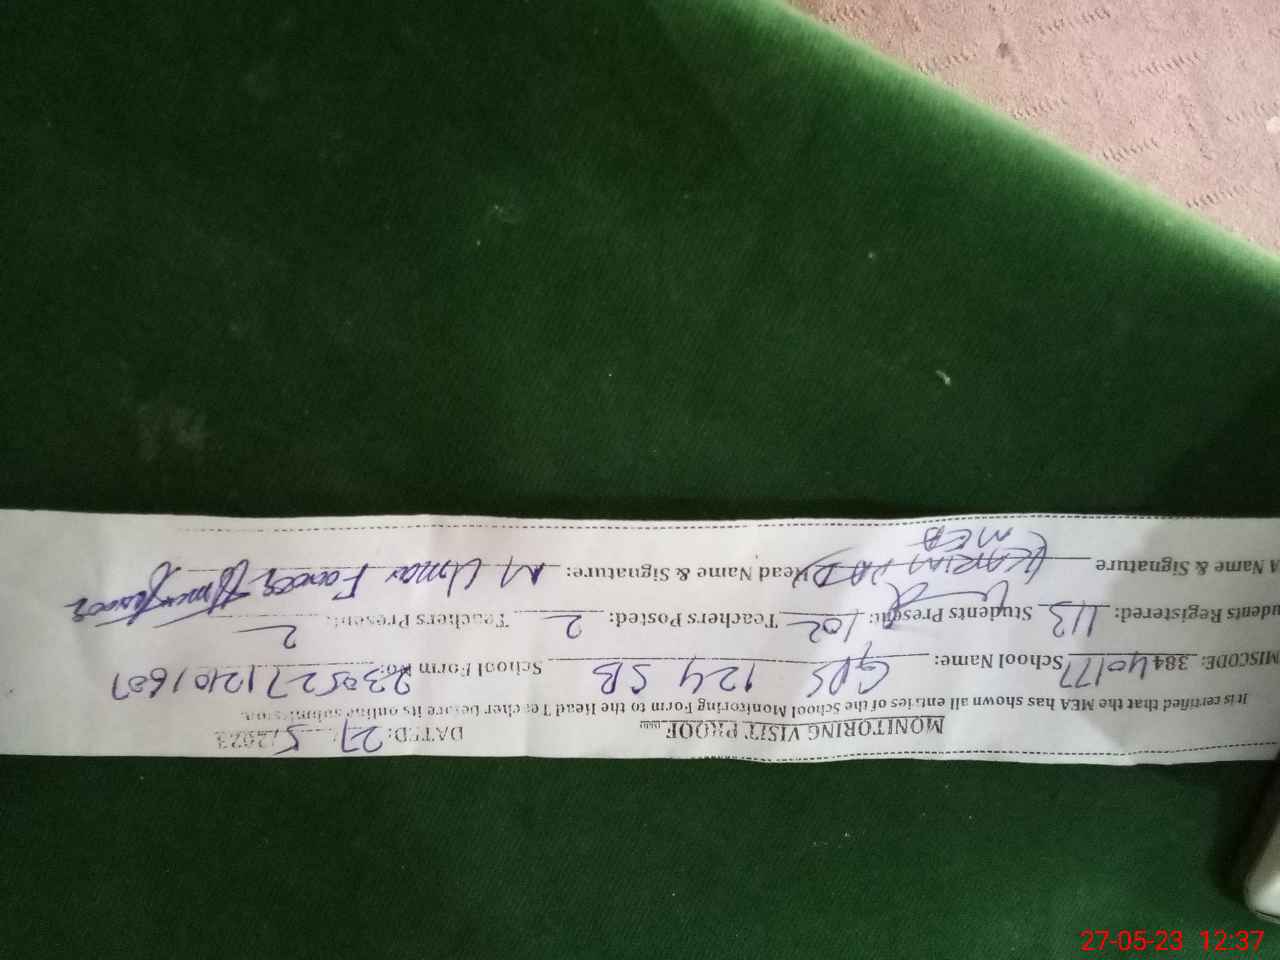 MONITORING VISIT PROOF DATED: 27.5.2023
It is certified that the MEA has shown all entries of the School Monitoring Form to the Head Teacher before its online submission.
MISCODE: 38440177 School Name: GPS 124 SB School Form No:
udents Registered: 113 Students Present: 102 Teachers Posted: 2 Teachers Present: 2
A Name & Signature Head Name & Signature: M Umar Farooq
MEA
27-05-23 12:37